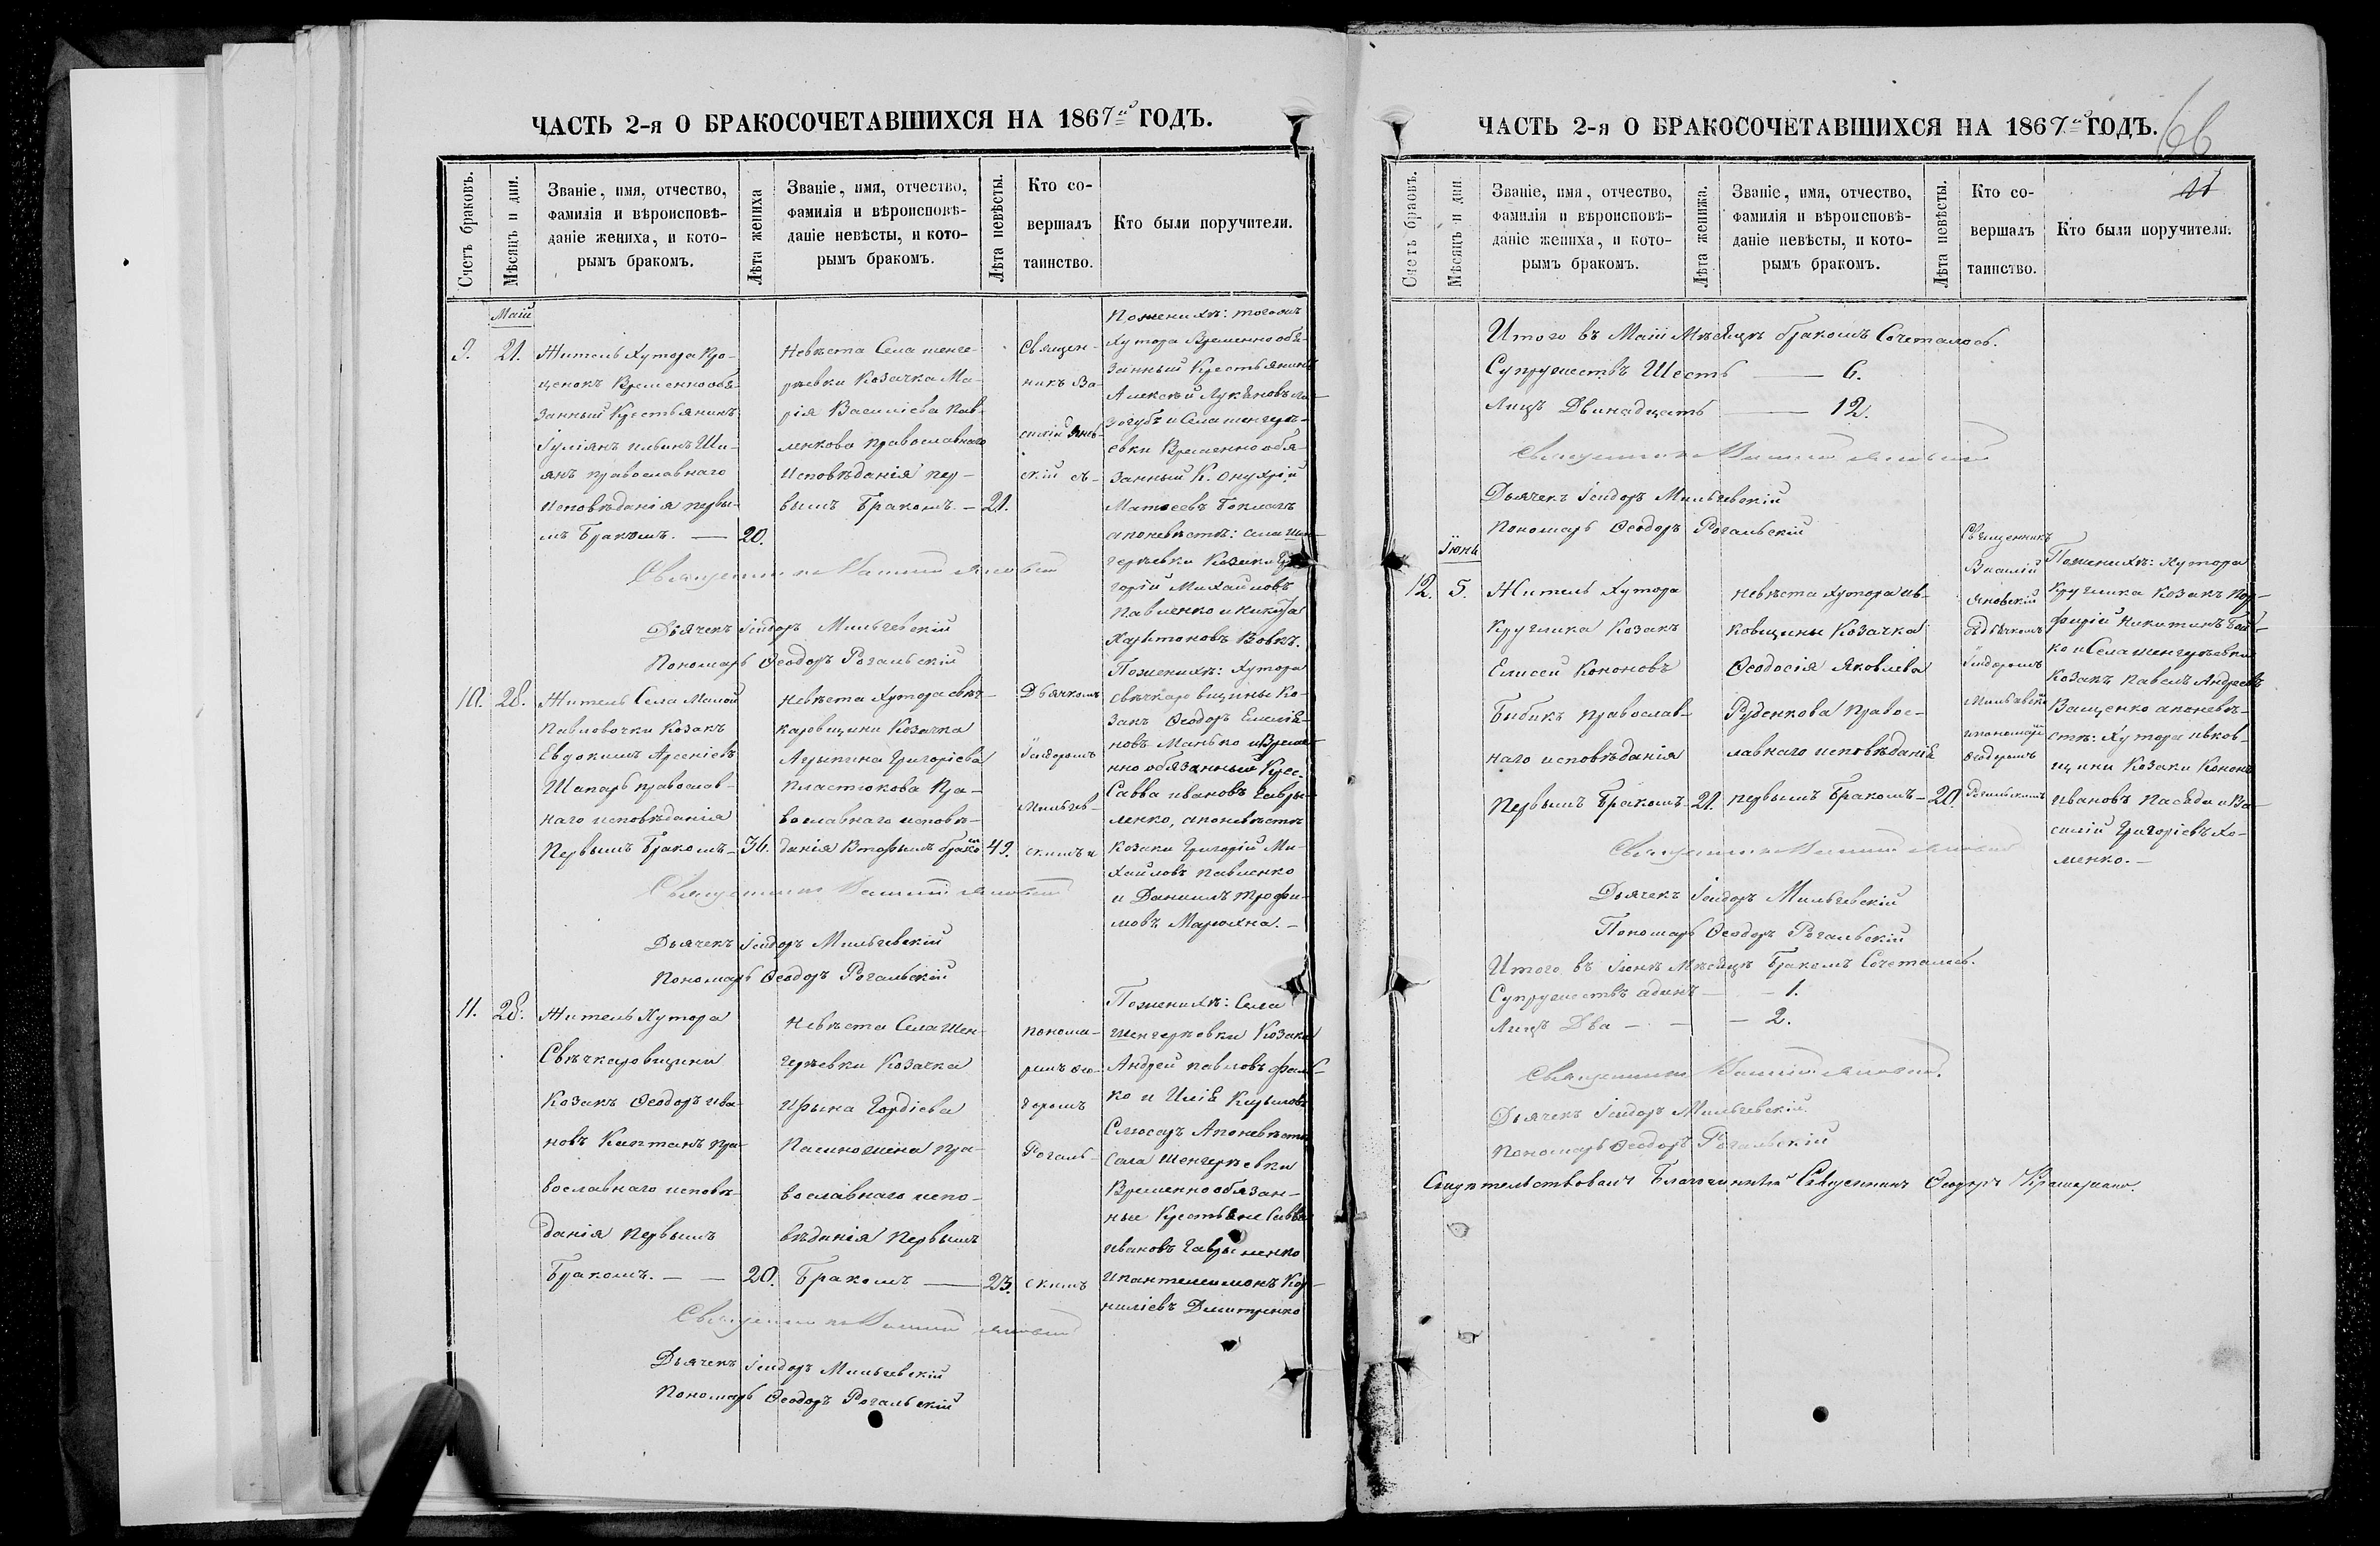 ЧАСТЬ 2-я О БРАКОСОЧЕТАВШИХСЯ НА 1867й ГОДЪ.
Счетъ браковъ.
Мѣсяцъ и дни.
Званіе, имя, отчество,
фамилія и вѣроисповѣ-
даніе жениха, и кото-
рымъ бракомъ.
Лѣта жениха
Званіе, имя, отчество,
фамилія и вѣроисповѣ-
даніе невѣсты, и кото-
рымъ бракомъ.
Лѣта невѣсты.
Кто со-
вершалъ
таинство.
Кто были поручители.
Маій
9.
21.
Житель Хутора Кро-
ценокъ Временнообя-
занный Крестьянинъ
Іуліянъ Ши-
янъ православнаго
исповѣданія первы-
мъ Бракомъ. —
20.
Невѣста Села шенге-
рѣевки Козачка Ма-
рія Василіева Пав-
ленкова православнаго
исповѣданія пер-
вымъ Бракомъ. —
21.
Священ-
никъ Ва-
силій Янов-
скій съ-
Поженихѣ: тогожъ
Хутора Временнообя-
занный Крестьянинъ
Алексѣй Лукьяновъ Ло-
зогубъ и Села шенгерѣ-
евки Временнообя-
занный К. Онуфрій
Матѳеевъ
апоневѣстѣ: села Шен-
герѣевки Козаки Гри-
горій Михайловъ
Павленко и Никита
Харитоновъ Вовкъ.
Священникъ Василій Яновскій
Дьячекъ Ісидоръ Мильгевскій
Пономарь Ѳеодоръ Рогальскій
10.
28.
Житель Села Малой
Павловочки Козакъ
Евдокимъ Арсеніевъ
Шапарь православ-
наго исповѣданія
Первымъ Бракомъ —
36.
Невѣста Хутора свѣч-
каровщини Козачка
Агрыпина Григоріева
Пластюкова Пра-
вославнаго исповѣ-
данія Вторымъ брако
49.
Дьячкомъ
Ісидоромъ
Мильгев-
скимъ и
Поженихѣ: Хутора
свѣчкаровщины Ко-
закъ Ѳеодоръ Емелія-
новъ Манько и Време-
ннообязанный Крес.
Савва ивановъ Гавры-
ленко, апоневѣстѣ
Козаки Григорій Ми-
хайловъ Павленко
и Даніилъ Трофи-
мовъ Марюхна. —
Священникъ Василій Яновскій
Дьячекъ Ісидоръ Мильгевскій
Пономарь Ѳеодоръ Рогальскій
11.
28.
Житель Хутора
Свѣчкаровщини
Козакъ Ѳеодоръ ива-
новъ Каптанъ пра-
вославнаго исповѣ-
данія Первымъ
Бракомъ. — —
20.
Невѣста Села Шен-
герѣевки Козачка
Ирына Гордіева
пра-
вославнаго испо-
вѣданія Первымъ
Бракомъ —
23.
понома-
ремъ Ѳео-
доромъ
Рогаль-
скимъ
Поженихѣ: Села
Шенгерѣевки Козаки
Андрей павловъ
ко и Илія Кириловъ
Слюсарь Апоневѣстѣ
Села Шенгерѣевки
Временнообязан-
ные Крестьяне Савва
ивановъ Гаврыленко
ипантелеимонъ Кор-
ниліевъ Дмитренко
Священникъ Василій Яновскій
Дьячекъ Ісидоръ Мильгевскій
Пономарь Ѳеодоръ Рогальскій
ЧАСТЬ 2-я О БРАКОСОЧЕТАВШИХСЯ НА 1867й ГОДЪ.
66
Счетъ браовъ.
Мѣсяцъ и дни.
Званіе, имя, отчество,
фамилія и вѣроисповѣ-
даніе жениха, и кото-
рымъ бракомъ.
Лѣта женижа.
Званіе, имя, отчество,
фамилія и вѣроисповѣ-
даніе невѣсты, и кото-
рымъ бракомъ.
Лѣта невѣсты.
Кто со-
вершалъ
таинство.
Кто были поручители.
Итого въ Маіи Мѣсяцѣ бракомъ Сочеталось.
Супружествъ Шесть — 6.
Лицъ Двинадцать — 12.
Священникъ Василій Яновскій
Дьячекъ Ісидоръ Мильгевскій
Пономарь Ѳеодоръ Рогальскій
Іюнь
12.
5.
Житель Хутора
Круглика Козакъ
Елисей Кононовъ
Бибикъ православ-
наго исповѣданія
Первымъ Бракомъ —
21.
невѣста Хутора ив-
ковщины Козачка
Ѳеодосія Яковлева
Руденкова Право-
лавнаго исповѣданія
первымъ Бракомъ —
20.
Священникъ
Василій
Яновскій
съ дьячкомъ
Ісидоромъ
Мильгевски
ипономарё
Ѳеодоромъ
Рогальскимъ
Поженихѣ: Хутора
Круглика Козакъ Пор-
фирій Никитинъ Бой-
ко и Села шенгерѣевки
Козакъ Павелъ Андреевъ
Ващенко апоневѣ-
стѣ: Хутора ивков-
щини Козаки Кононъ
ивановъ и Ва-
силій Григоріевъ Хо-
менко. —
Священникъ Василій Яновскій
Дьячекъ Ісидоръ Мильгевскій
Пономарь Ѳеодоръ Рогальскій
Итого въ Іюнѣ Мѣсяцѣ Бракомъ Сочеталось.
Супружествъ адинъ — — 1.
Лицъ Два — — — 2.
Священникъ Василій Яновскій.
Дьячекъ Ісидоръ Мильгевскій
Пономарь Ѳеодоръ Рогальскій
Благочинный Священникъ Ѳеодоръ